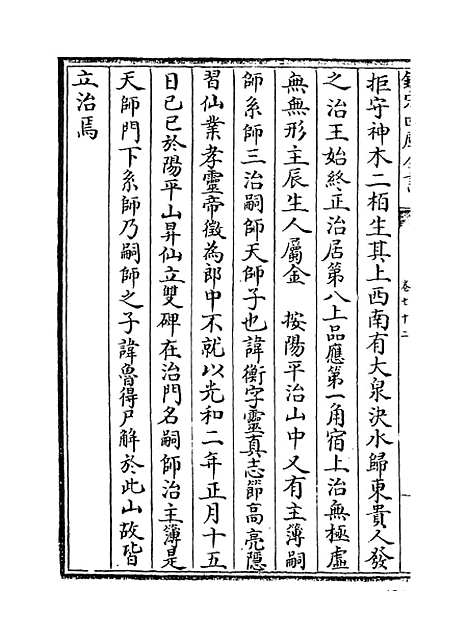 欽定四庫全書
卷七十二
拒守神木二栢生其上西南有大泉決水歸東貴人發
之治王始終正治居第八上品應第一角宿上治無極虛
無無形主辰生人屬金　按陽平治山中又有主簿嗣
師系師三治嗣師天師子也諱衡字靈真志節高亮隱
習仙業孝靈帝徵為郎中不就以光和二年正月十五
日己巳於陽平山昇仙立雙碑在治門名嗣師治主簿是
天師門下系師乃嗣師之子諱魯得尸解於此山故皆
立治焉